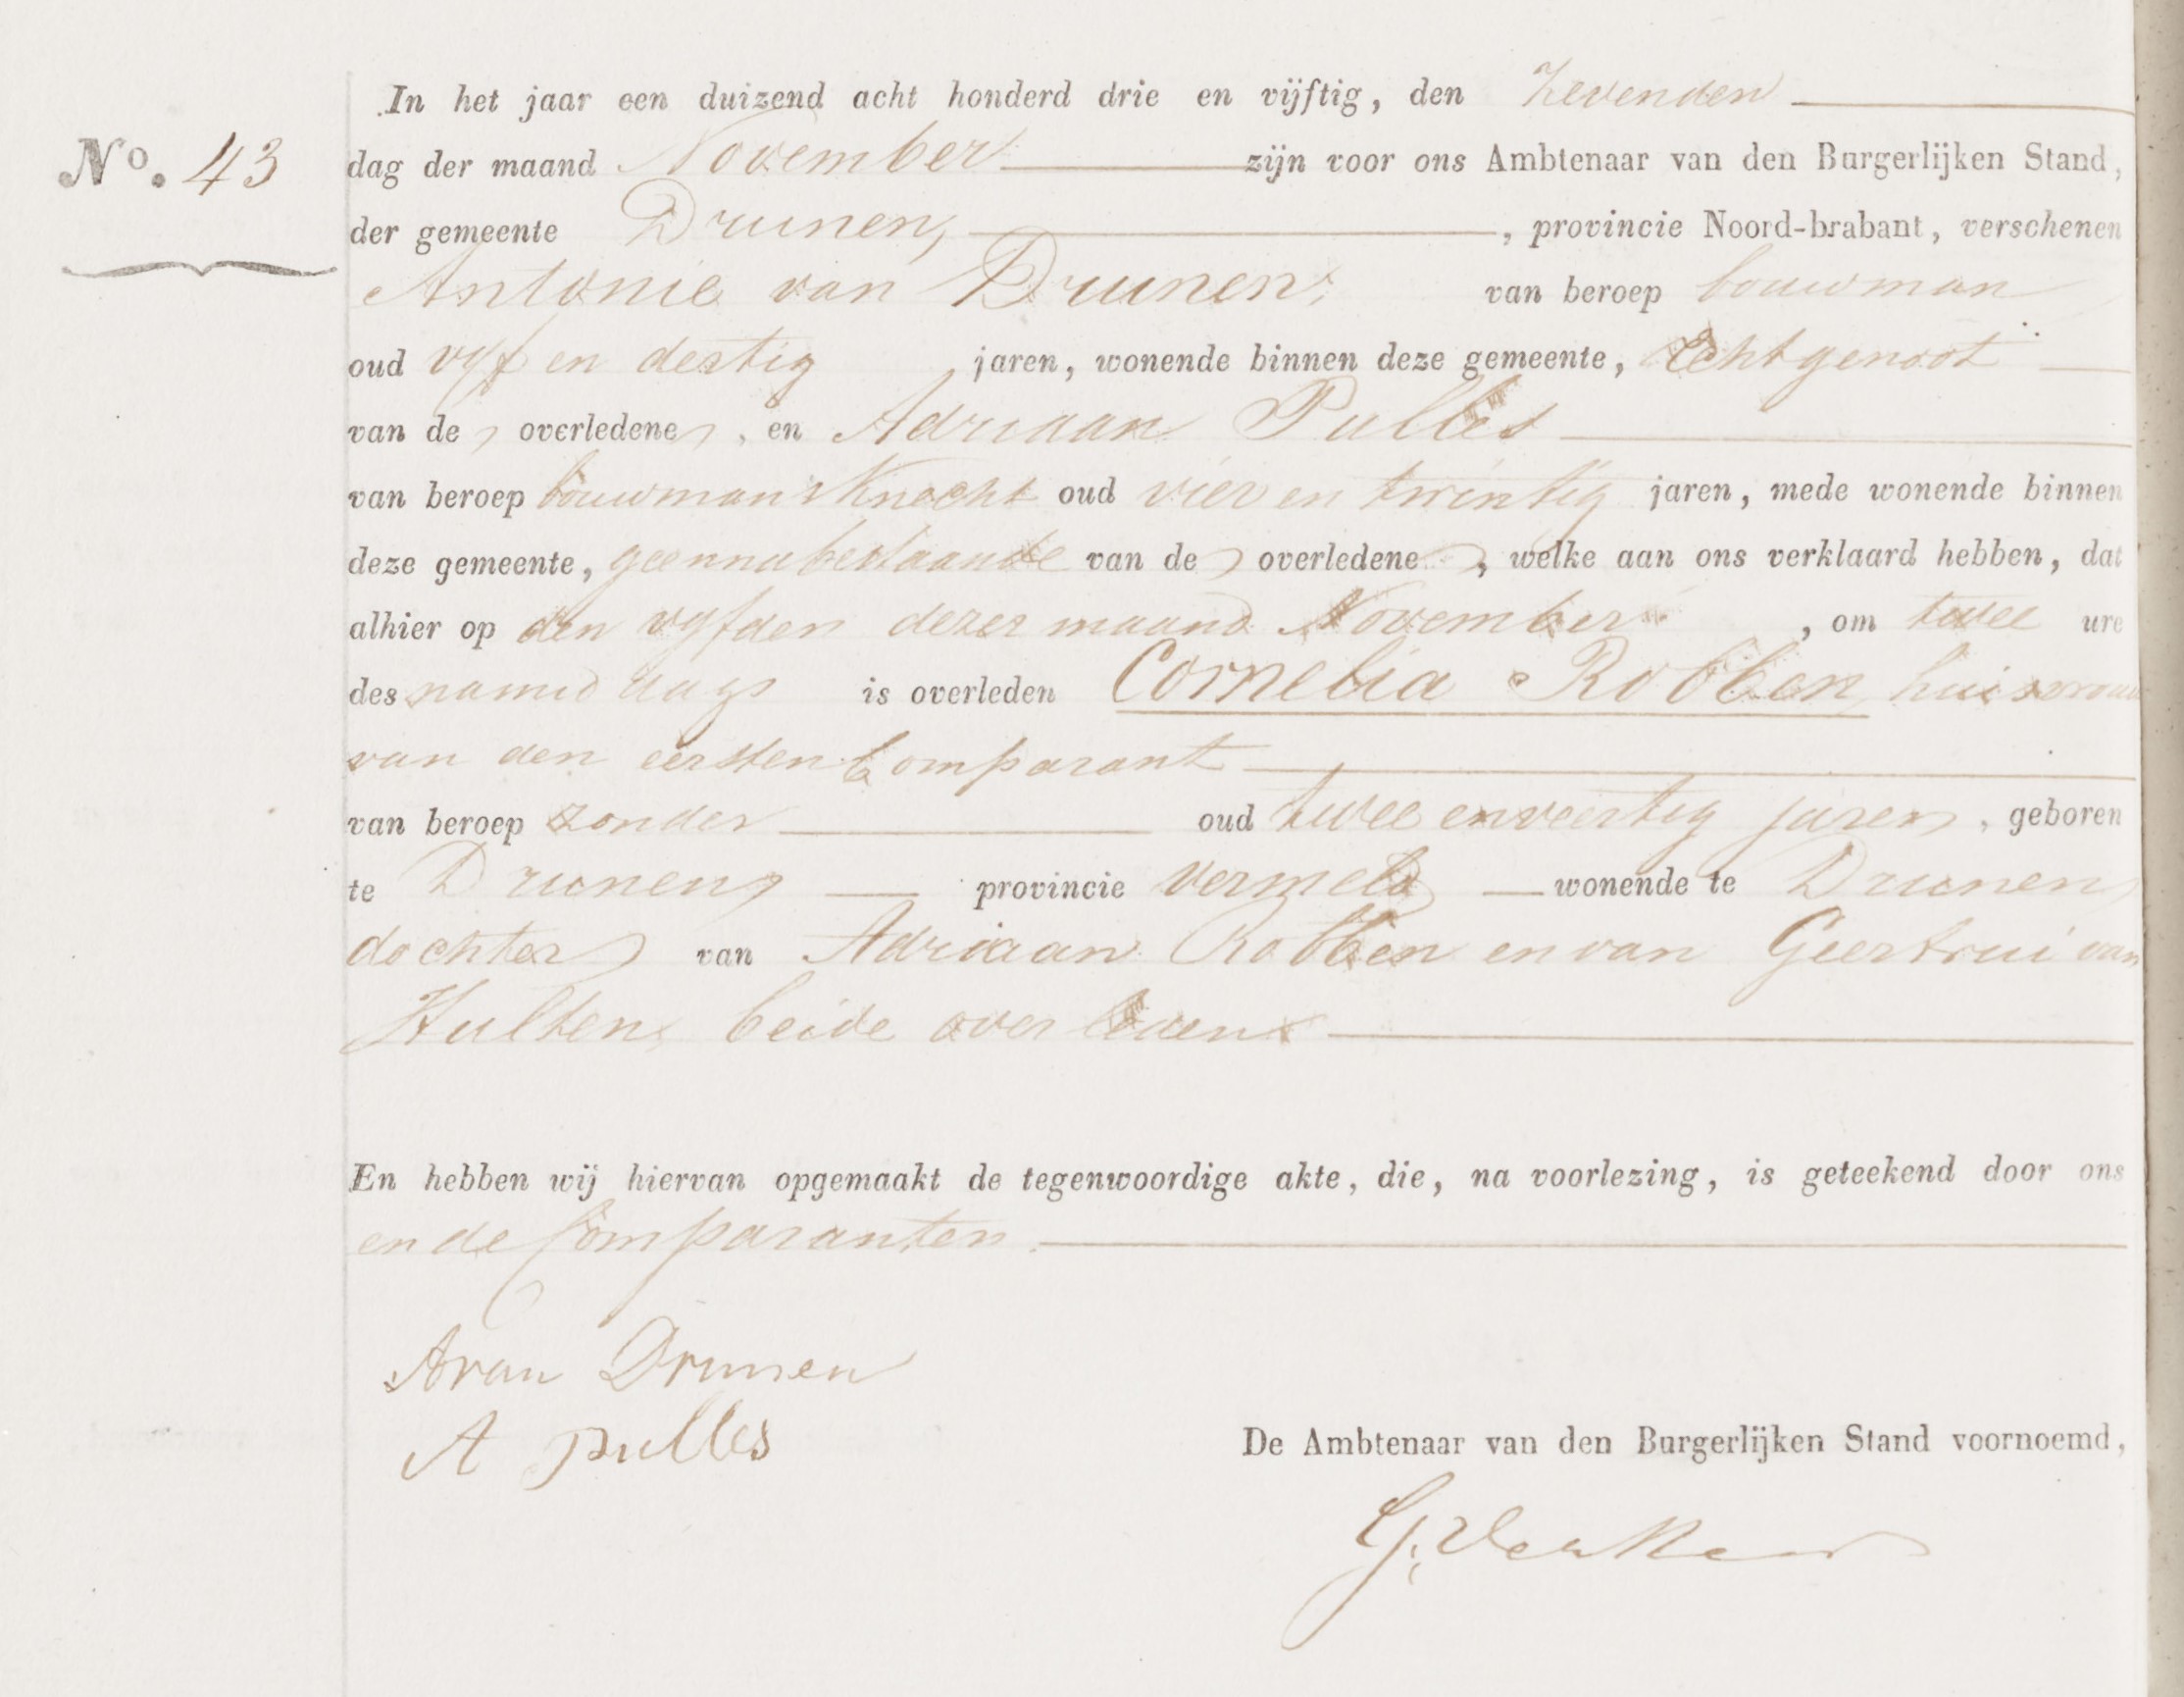 In het jaar een duizend acht honderd drie en vijftig, den Zevenden
No. 43
dag der maand November zijn voor ons Ambtenaar van den Burgerlijken Stand,
der gemeente Drunen, , provincie Noord-brabant, verschenen
Antonie van Drunen, van beroep bouwman
oud vyf en dertig jaren, wonende binnen deze gemeente, Echtgenoot
van de overledene , en Adriaan Pulles
van beroep bouwmans Knecht oud vier en twintig jaren, mede wonende binnen
deze gemeente, geennabestaande van de overledene , welke aan ons verklaard hebben, dat
alhier op den vyfden dezer maand November , om twee ure
des namid dags is overleden Cornelia Robben, huisvrouw
van den eersten Comparant
van beroep zonder oud twee en veertig jaren , geboren
te Drunen, provincie vermeld wonende te Drunen,
dochter van Adriaan Robben en van Geertrui van
Hulten, beide overleden
En hebben wij hiervan opgemaakt de tegenwoordige akte, die, na voorlezing, is geteekend door ons
en de Comparanten.
A van Drunen
A pulles
De Ambtenaar van den Burgerlijken Stand voornoemd,